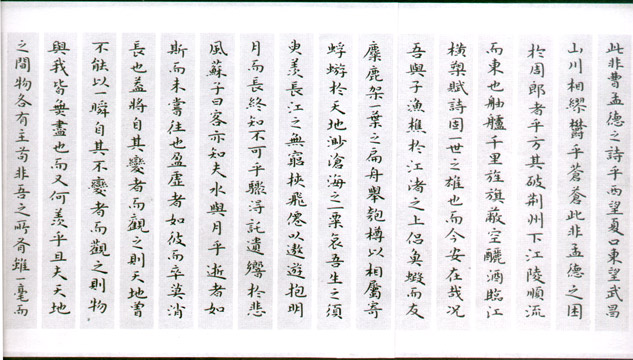 此非曹孟德之詩乎西望夏口東望武昌
山川相繆鬱乎蒼蒼此非孟德之困
於周郎者乎方其破荆州下江陵順流
而東也舳艫千里旌旗蔽空釃酒臨江
橫槊賦詩固一世之雄也而今安在哉况
吾與子漁樵於江渚之上侶魚蝦而友
麋鹿架一葉之扁舟舉匏樽以相屬寄
蜉蝣於天地渺滄海之一粟哀吾生之須
臾羨長江之無窮挾飛僊以遨遊抱明
月而長終知不可乎驟得託遺響於悲
風蘇子曰客亦知夫水與月乎逝者如
斯而未嘗往也盈虛者如彼而卒莫消
長也蓋將自其變者而觀之則天地曾
不能以一瞬自其不變者而觀之則物
與我皆無盡也而又何羨乎且夫天地
之間物各有主苟非吾之所有雖一毫而